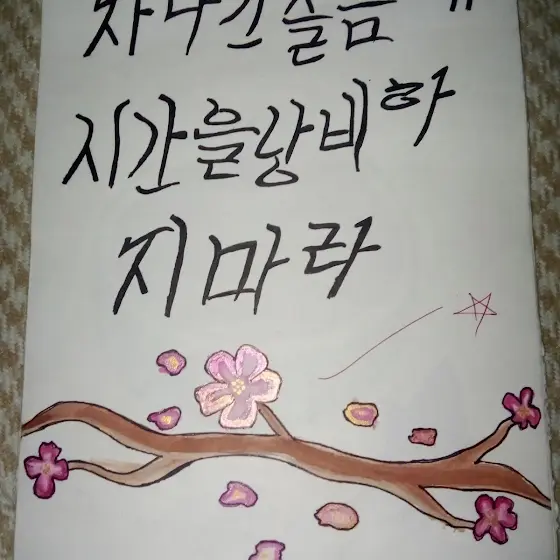 슬픔
시간을낭비하
지마라